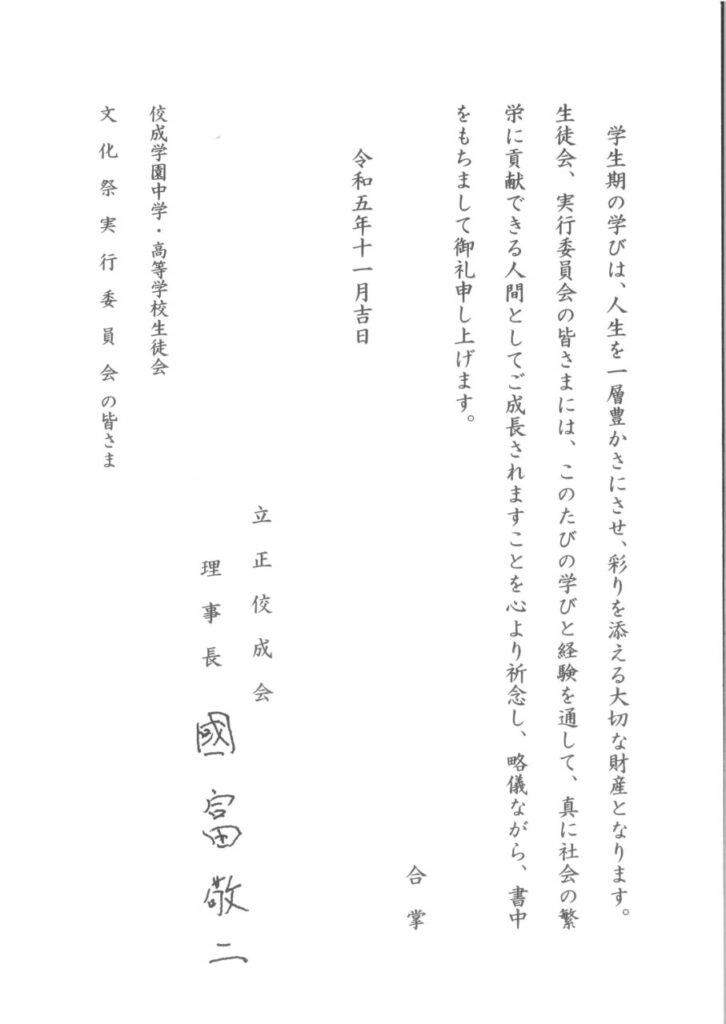 学生期の学びは、人生を一層豊かさにさせ、彩りを添える大切な財産となります。
生徒会、実行委員会の皆さまには、このたびの学びと経験を通して、真に社会の繁
栄に貢献できる人間としてご成長されますことを心より祈念し、略儀ながら、書中
をもちまして御礼申し上げます。
合掌
令和五年十一月吉日
立正佼成会
理事長 國富敬二
佼成学園中学・高等学校生徒会
文化祭実行委員会の皆さま